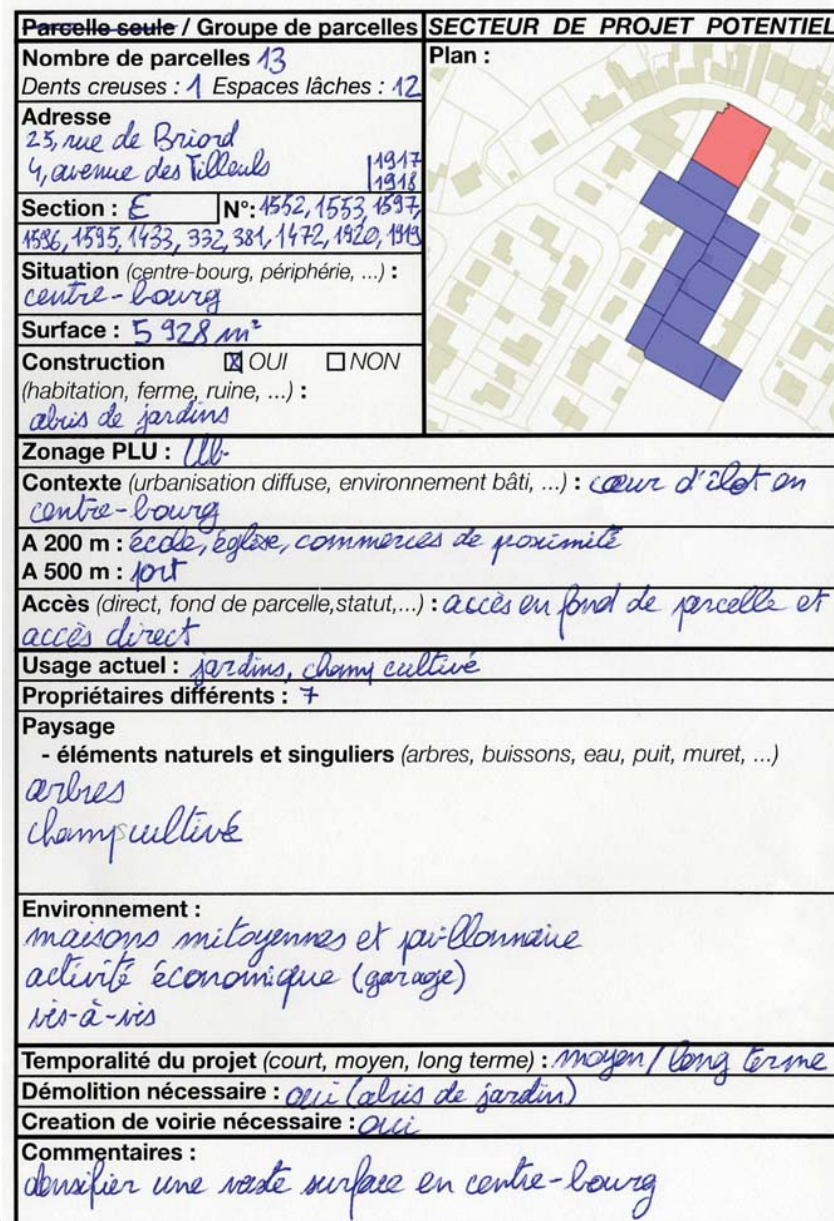 Parcelle seule / Groupe de parcelles
SECTEUR DE PROJET POTENTIEL
Nombre de parcelles 13
Dents creuses : 1 Espaces lâches : 12
Plan :
Adresse
25, rue de Briord
4, avenue des Tilleuls
1917
1918
Section : E
N°: 1552, 1553, 1597,
1596, 1595, 1433, 332, 381, 1472, 1920, 1919
Situation (centre-bourg, périphérie, ...) :
centre-bourg
Surface : 5 928 m²
Construction ☒ OUI ☐ NON
(habitation, ferme, ruine, ...) :
abris de jardins
Zonage PLU : Ub
Contexte (urbanisation diffuse, environnement bâti, ...) : cœur d'îlot en
centre-bourg
A 200 m : école, église, commerces de proximité
A 500 m : port
Accès (direct, fond de parcelle,statut,...) : accès en fond de parcelle et
accès direct
Usage actuel : jardins, champ cultivé
Propriétaires différents : 7
Paysage
- éléments naturels et singuliers (arbres, buissons, eau, puit, muret, ...)
arbres
champs cultivé
Environnement :
maisons mitoyennes et pavillonnaire
activité économique (garage)
vis-à-vis
Temporalité du projet (court, moyen, long terme) : moyen / long terme
Démolition nécessaire : oui (abris de jardin)
Creation de voirie nécessaire : oui
Commentaires :
densifier une vaste surface en centre-bourg